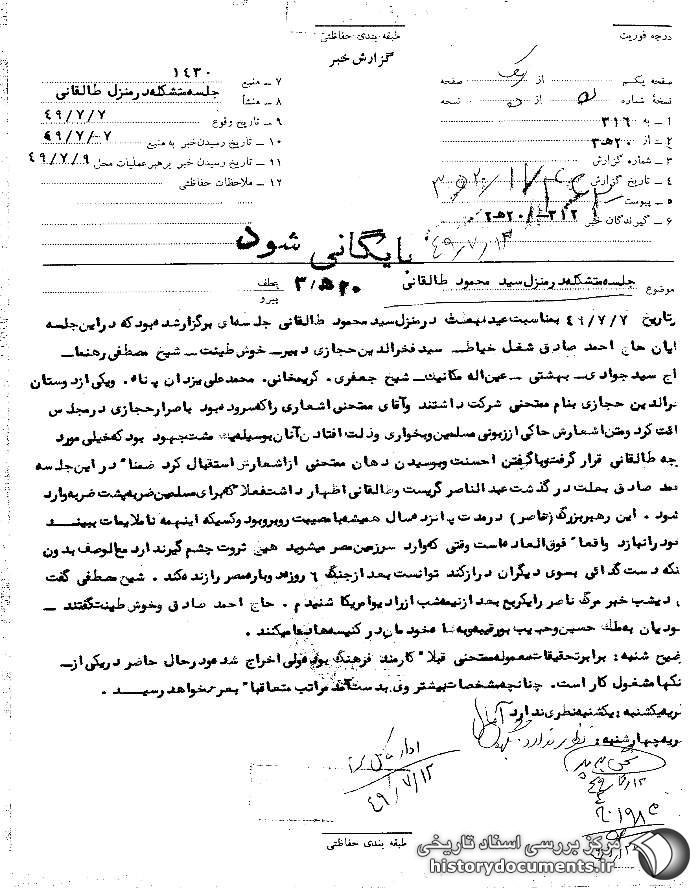 درجه فوریت
طبقه بندی حفاظتی
گزارش خبر
صفحه یکم از یک صفحه
نسخه شماره از نسخه
۱ ـ به ۳۱۶
۲ ـ از ۲۰ ه ۳
۳ ـ شماره گزارش
۴ ـ تاریخ گزارش
۵ ـ پیوست
۶ ـ گیرندگان خبر ۳۱۲
۷ ـ منبع ۱۴۳۰
۸ ـ منشأ جلسه متشکله در منزل طالقانی
۹ ـ تاریخ وقوع ۴۹/۷/۷
۱۰ ـ تاریخ رسیدن خبر به منبع ۴۹/۷/۷
۱۱ ـ تاریخ رسیدن خبر برهبر عملیات محل ۴۹/۷/۹
۱۲ ـ ملاحظات حفاظتی
بایگانی شود
۴۹/۷/۱۳
موضوع جلسه متشکله در منزل سید محمود طالقانی
عطف
پیرو
رتاریخ ۴۹/۷/۷ بمناسبت عید مبعث در منزل سید محمود طالقانی جلسه‌ای برگزار شده بود که در این جلسه
ایان حاج احمد صادق شغل خیاط ـ سید فخرالدین حجازی دبیر ـ خوش طینت ـ شیخ مصطفی رهنما ـ
اج سید جوادی ـ بهشتی ـ عین‌اله مکانیک ـ شیخ جعفری ـ کریمخانی. محمد علی یزدان پناه. ویکی از دوستان
خرالدین حجازی بنام ممتحنی شرکت داشتند وآقای ممتحنی اشعاری را که سروده بود باصرار حجازی در مجلس
ائت کرد ومتن اشعارش حاکی از زبونی مسلمین وبخواری وذلت افتادن آنان بوسیله مشت جهود بود که خیلی مورد
جه طالقانی قرار گرفت وباگفتن احسنت وبوسیدن دهان ممتحنی از اشعارش استقبال کرد ضمنا" در این جلسه
مد صادق بعلت درگذشت عبدالناصر گریست وطالقانی اظهار داشت فعلا" که برای مسلمین ضربه پشت ضربه وارد
شود . این رهبر بزرگ (ناصر) در مدت پانزده سال همیشه با مصیبت روبرو بود وکسیکه اینهمه ناملایمات ببیند
ود را نبازد واقعا" فوق‌العاده است وقتی که وارد سرزمین مصر میشوید هیچ ثروت چشم گیر ندارد مع‌الوصف بدون
نکه دست گدائی بسوی دیگران دراز کند توانست بعد از جنگ ۶ روزه دوباره مصر را زنده کند . شیخ مصطفی گفت
دیشب خبر مرگ ناصر را یکربع بعد از نیمه شب از رادیو امریکا شنیدم . حاج احمد صادق وخوش طینت گفتند ـ
ودیان به ملک حسین وحبیب بورقیبه وبه شاه خودمان در کنیسه‌ها دعا میکنند .
وضیح شنبه : برابر تحقیقات معموله ممتحنی قبلا" کارمند فرهنگ بوده ولی اخراج شده ودر حال حاضر در یکی از ـ
نکها مشغول کار است. چنانچه مشخصات بیشتر وی بدست آمد مراتب متعاقبا" بعرض خواهد رسید ـ
ریه یکشنبه : یکشنبه نظری ندارد
ریه چهارشنبه : نظری ندارد
۴۹/۷/۱۲
طبقه بندی حفاظتی
مرکز بررسی اسناد تاریخی
historydocuments.ir